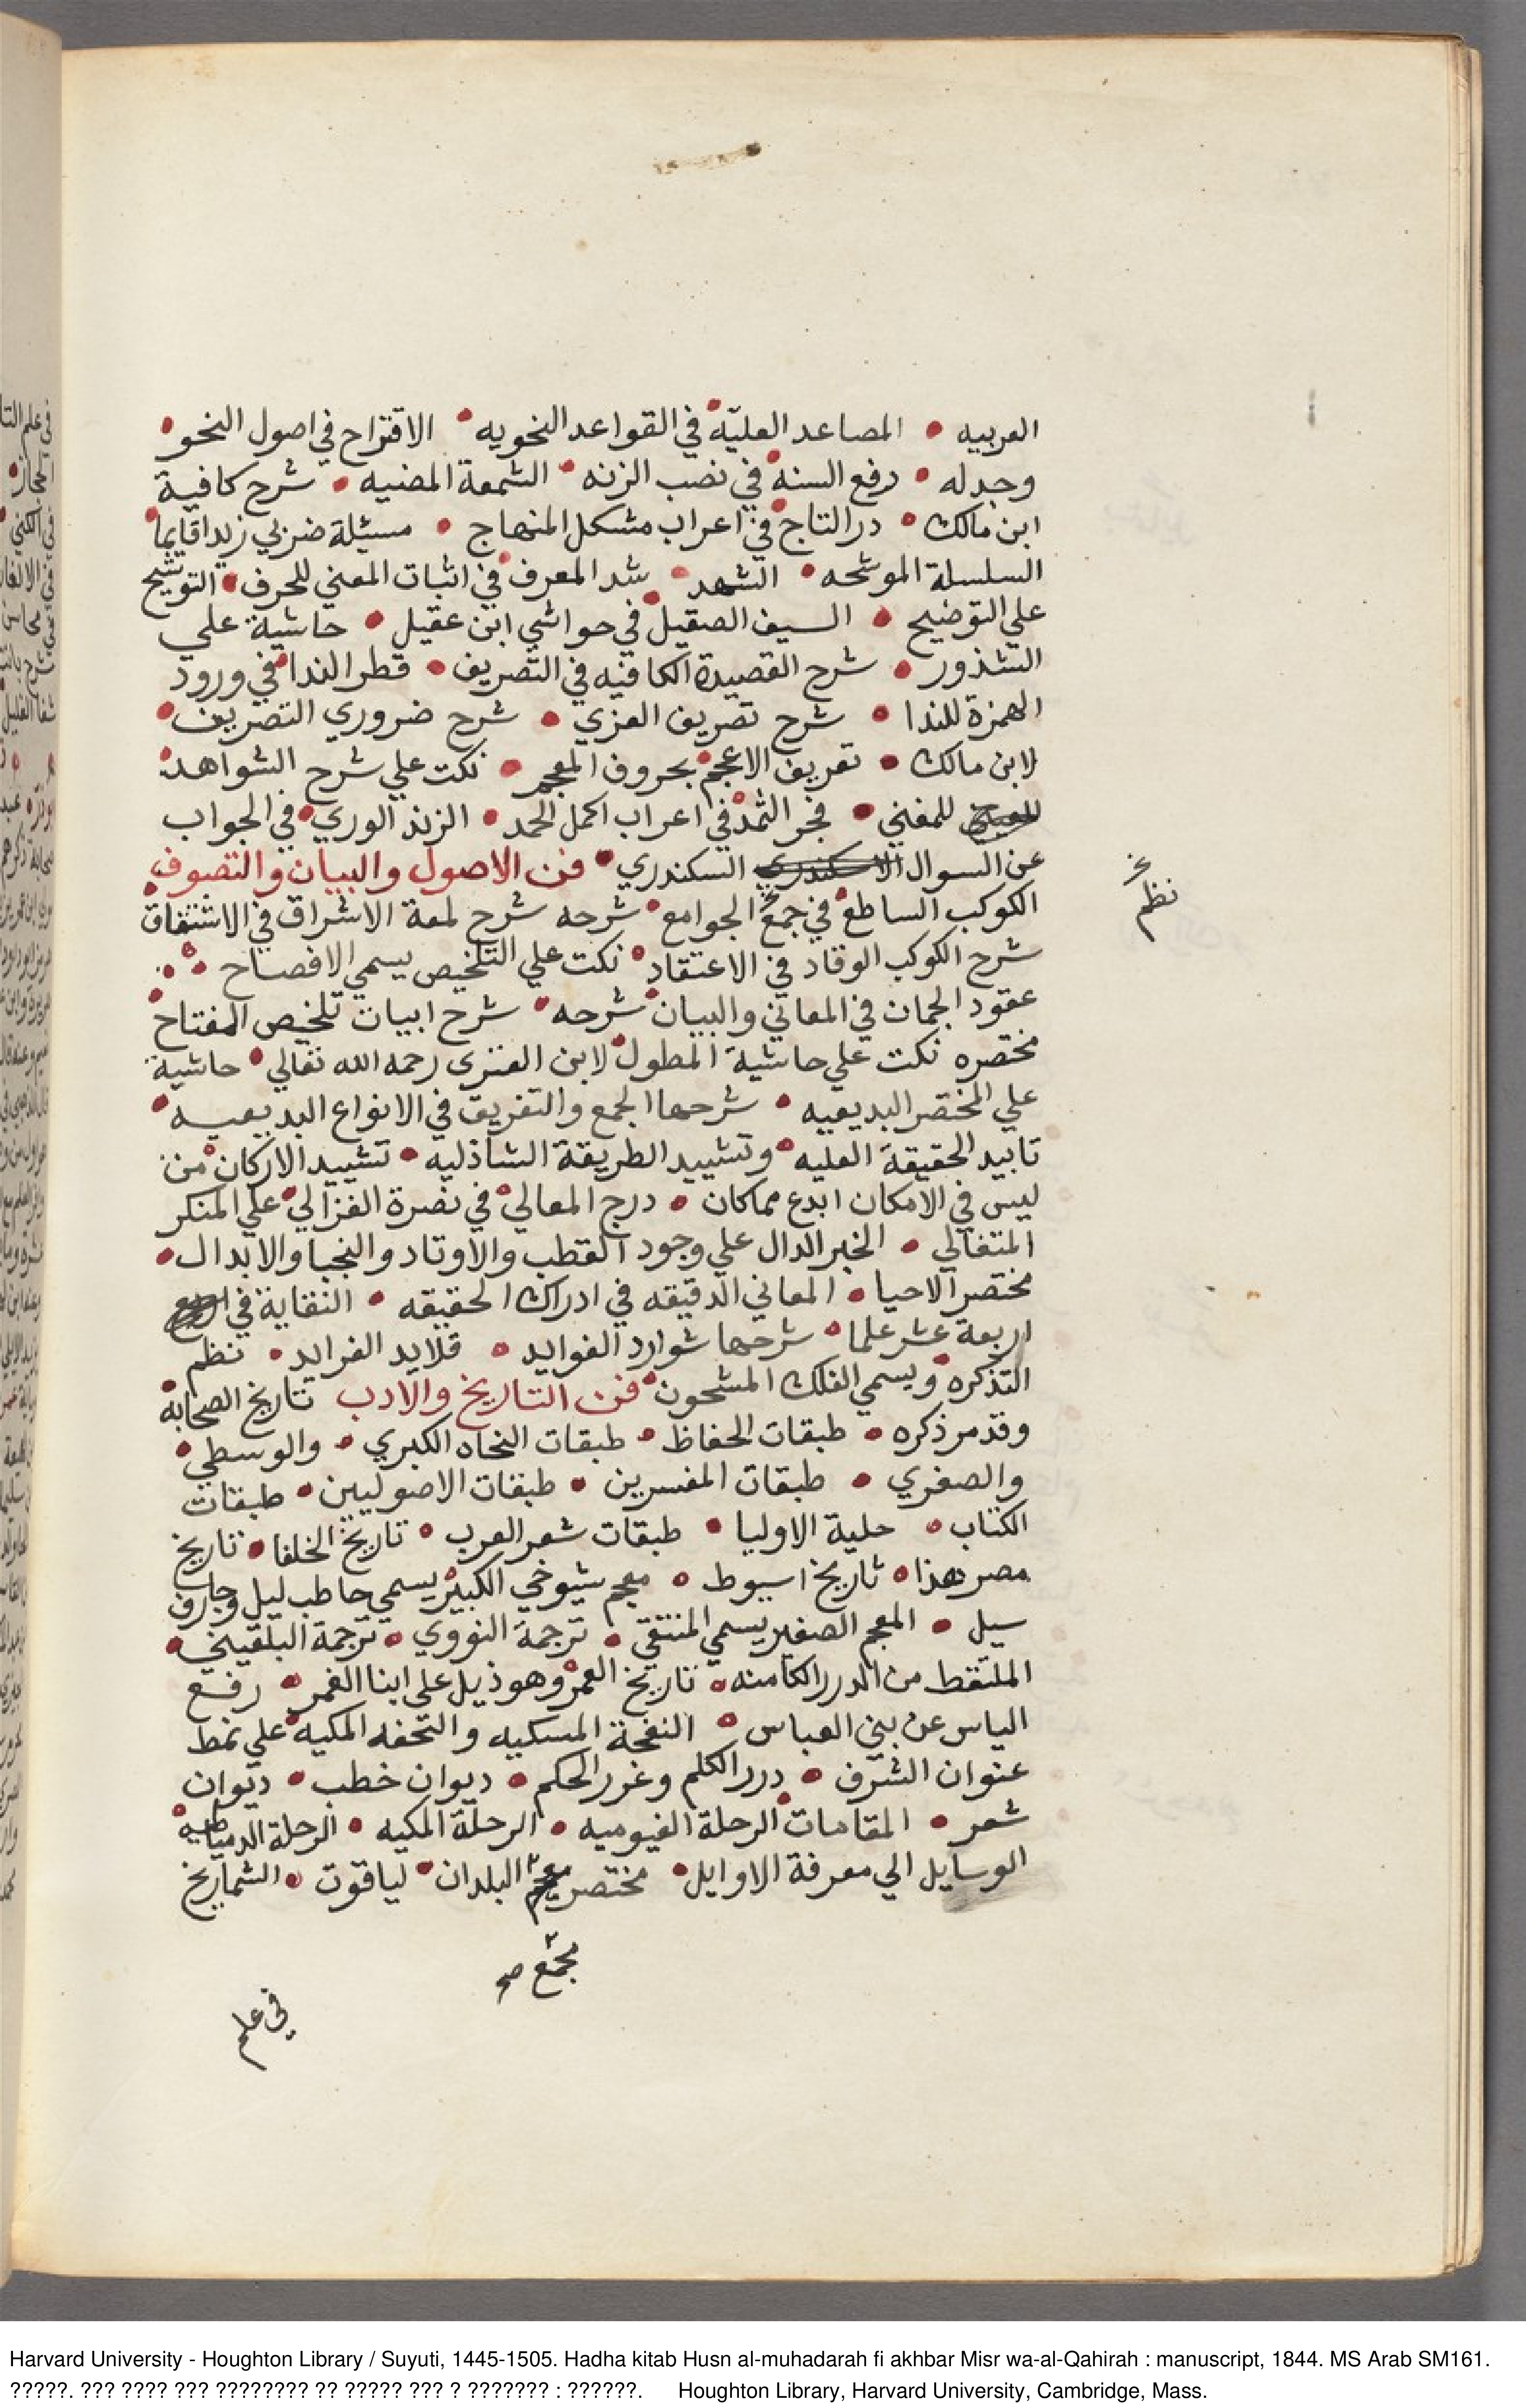 العربيه • المصاعد العليّة في القواعد النحويه • الاقتراح في اصول النحو •
وجدله • رفع السنه في نصب الزنه • الشمعة المضيه • شرح كافية
ابن مالك • در التاج في اعراب مشكل المنهاج • مسئلة ضربي زيدا قايما
السلسلة الموشحه • الشهد • شد المعرف في اثبات المعني للحرف • التوشيح
علي التوضيح • السيف الصقيل في حواشي ابن عقيل • حاشية علي
الشذور • شرح القصيدة الكافيه في التصريف • قطر الندا في ورود
الهمزة للندا • شرح تصريف العزي • شرح ضروري التصريف •
لابن مالك • تعريف الاعجم بحروف المعجم • نكت علي شرح الشواهد
للمغني • فجر الثمد في اعراب اكمل الحمد • الزند الوري في الجواب
عن السوال الاسكندري السكندري • فن الاصول والبيان والتصوف
نظم
الكوكب الساطع في جمع الجوامع • شرحه شرح لمعة الاشراق في الاشتقاق
شرح الكوكب الوقاد في الاعتقاد • نكت علي التلخيص يسمي الافصاح •
عقود الجمان في المعاني والبيان • شرحه • شرح ابيات تلخيص المفتاح
مختصره نكت علي حاشية المطول لابن الفنزى رحمه الله تعالي • حاشية
علي المختصر البديعيه • شرحها الجمع والتفريق في الانواع البديعيه •
تاييد الحقيقة العليه • وتشييد الطريقة الشاذليه • تشييد الاركان من
ليس في الامكان ابدع مماكان • درج المعالي في نصرة الغزالي علي المنكر
المتغالي • الخبر الدال علي وجود القطب والاوتاد والنجبا والابدال •
مختصر الاحيا • المعاني الدقيقه في ادراك الحقيقه • النقاية في
اربعة عشر علما • شرحها شوارد الفوايد • قلايد الفرايد • نظم
التذكره ويسمي الفلك المشحون • فن التاريخ والادب تاريخ الصحابة
وقد مر ذكره • طبقات الحفاظ • طبقات النحاه الكبري • والوسطي •
والصغري • طبقات المفسرين • طبقات الاصوليين • طبقات
الكتاب • حلية الاوليا • طبقات شعر العرب • تاريخ الخلفا • تاريخ
مصر هذا • تاريخ اسيوط • معجم شيوخي الكبير يسمي حاطب ليل وجارف
سيل • المعجم الصغير يسمي المنتقي • ترجمة النووي • ترجمة البلقيني •
الملتقط من الدرر الكامنه • تاريخ العمر وهو ذيل علي ابنا الغمر • رفع
الباس عن بني العباس • النفحة المسكيه والتحفه المكيه علي نمط
عنوان الشرف • درر الكلم وغرر الحكم • ديوان خطب • ديوان
شعر • المقامات الرحلة الفيوميه • الرحلة المكيه • الرحلة الدمياطيه
الوسايل الي معرفة الاوايل • مختصر معجم البلدان • لياقوت • الشماريخ
مجمع صح
في علم
Harvard University - Houghton Library / Suyuti, 1445-1505. Hadha kitab Husn al-muhadarah fi akhbar Misr wa-al-Qahirah : manuscript, 1844. MS Arab SM161.
?????. ??? ???? ??? ???????? ?? ????? ??? ? ??????? : ??????. Houghton Library, Harvard University, Cambridge, Mass.